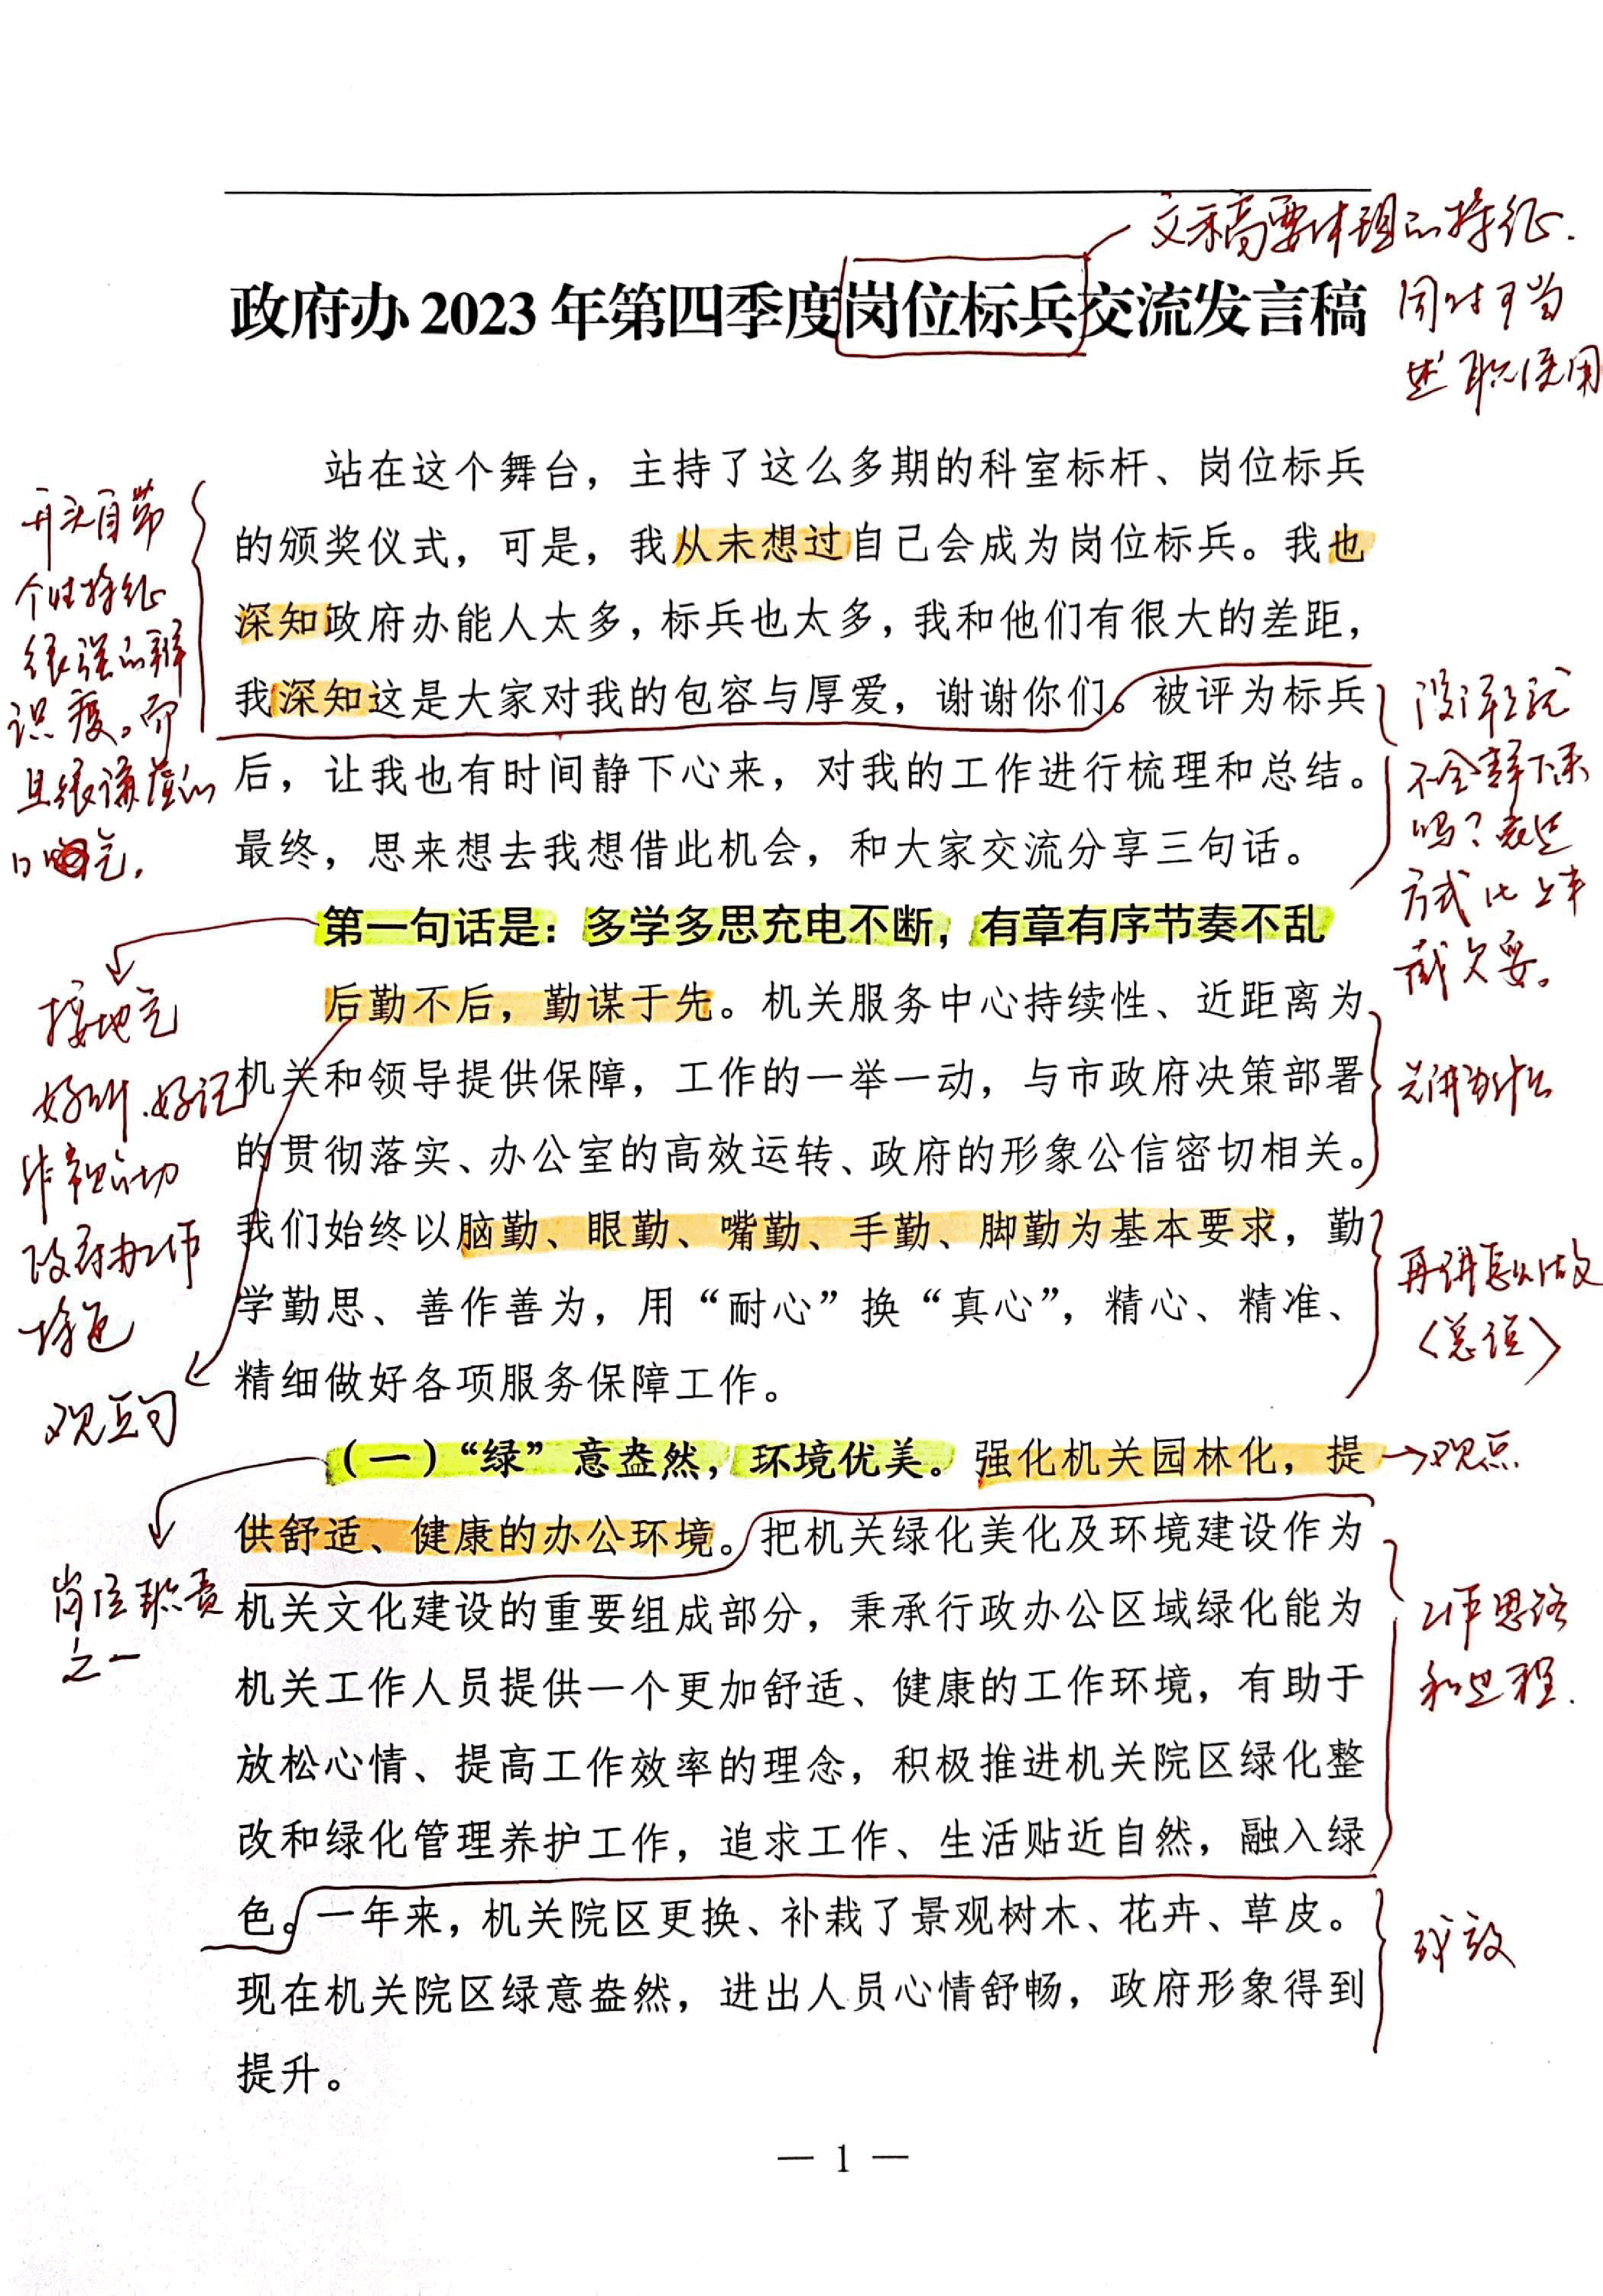 文稿要体现的特征.
政府办 2023 年第四季度岗位标兵交流发言稿
同时可当
述职使用
站在这个舞台，主持了这么多期的科室标杆、岗位标兵
的颁奖仪式，可是，我从未想过自己会成为岗位标兵。我也
深知政府办能人太多，标兵也太多，我和他们有很大的差距，
我深知这是大家对我的包容与厚爱，谢谢你们。被评为标兵
后，让我也有时间静下心来，对我的工作进行梳理和总结。
最终，思来想去我想借此机会，和大家交流分享三句话。
开头自带
个性特征
很强的辨
识度。而
且很谦虚的
口气.
没评上就
不会静下来
吗？表达
方式比上半
截欠妥。
第一句话是：多学多思充电不断，有章有序节奏不乱
后勤不后，勤谋于先。机关服务中心持续性、近距离为
机关和领导提供保障，工作的一举一动，与市政府决策部署
的贯彻落实、办公室的高效运转、政府的形象公信密切相关。
我们始终以脑勤、眼勤、嘴勤、手勤、脚勤为基本要求，勤
学勤思、善作善为，用“耐心”换“真心”，精心、精准、
精细做好各项服务保障工作。
接地气
好听.好记
非常贴切
政府办工作
特色
观点句
先讲为什么
再讲怎么做
〈总说〉
（一）“绿”意盎然，环境优美。强化机关园林化，提
供舒适、健康的办公环境。把机关绿化美化及环境建设作为
机关文化建设的重要组成部分，秉承行政办公区域绿化能为
机关工作人员提供一个更加舒适、健康的工作环境，有助于
放松心情、提高工作效率的理念，积极推进机关院区绿化整
改和绿化管理养护工作，追求工作、生活贴近自然，融入绿
色。一年来，机关院区更换、补栽了景观树木、花卉、草皮。
现在机关院区绿意盎然，进出人员心情舒畅，政府形象得到
提升。
观点
岗位职责
之一
工作思路
和过程.
成效
— 1 —